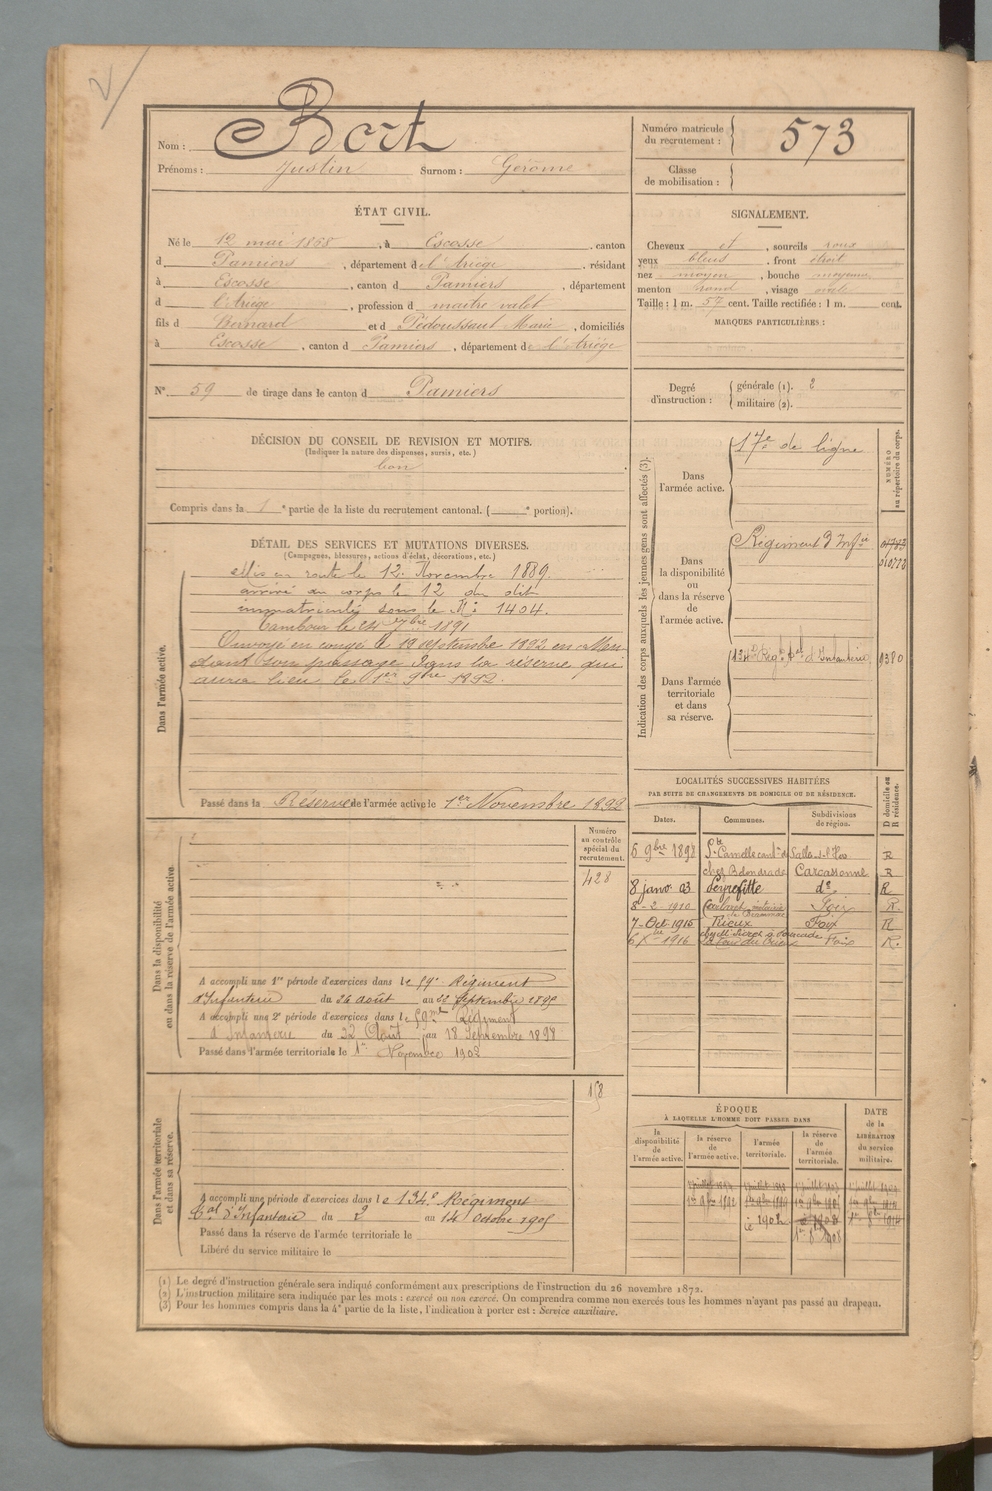 Nom : Bort
Prénoms : Justin Surnom : Gérome
Numéro matricule du recrutement : 573
Classe de mobilisation :
ÉTAT CIVIL.
Né le 12 mai 1868, à Escosse, canton
d Pamiers, département de l'Ariège, résidant
à Escosse, canton d Pamiers, département
d l'Ariège, profession d maître valet
fils d Bernard et d Pédoussaut Marie, domiciliés
à Escosse, canton d Pamiers, département de l'Ariège
N° 59 de tirage dans le canton d Pamiers
SIGNALEMENT.
Cheveux et, sourcils roux
yeux bleus, front étroit
nez moyen, bouche moyenne
menton rond, visage ovale
Taille : 1 m. 57 cent. Taille rectifiée : 1 m. cent.
MARQUES PARTICULIÈRES :
Degré d'instruction : générale (1). 2
militaire (2).
DÉCISION DU CONSEIL DE REVISION ET MOTIFS.
(Indiquer la nature des dispenses, sursis, etc.)
bon
Compris dans la 1e partie de la liste du recrutement cantonal. ( e portion).
DÉTAIL DES SERVICES ET MUTATIONS DIVERSES.
(Campagnes, blessures, actions d'éclat, décorations, etc.)
Dans l'armée active.
Mis en route le 12 Novembre 1889.
arrivé au corps le 12 du dit
immatriculé sous le N° 1404.
Tambour le 24 7bre 1891
Envoyé en congé le 19 septembre 1892 en atten-
dant son passage dans la réserve qui
aura lieu le 1er 9bre 1892.
Passé dans la Réserve de l'armée active le 1er Novembre 1892
Indication des corps auxquels les jeunes gens sont affectés (3).
NUMÉRO au répertoire du corps.
Dans l'armée active.
17e de ligne
Dans la disponibilité ou dans la réserve de l'armée active.
Régiment d'Infie
010772
Dans l'armée territoriale et dans sa réserve.
134e Régt tal d'Infanterie 1380
LOCALITÉS SUCCESSIVES HABITÉES
PAR SUITE DE CHANGEMENTS DE DOMICILE OU DE RÉSIDENCE.
Dates. Communes. Subdivisions de région. D domicile ou R résidence.
5 9bre 1898 Ste Camelle cant. de Salles-s-l'Hers R
chez Belondrade Carcassonne R
8 janv. 03 Peyrefitte do R
8-2-1910 Foix R.
7-Oct-1915 Rieux Foix R
6 Xbre 1916 Foix R.
Dans la disponibilité ou dans la réserve de l'armée active.
Numéro au contrôle spécial du recrutement.
428
A accompli une 1re période d'exercices dans le 59e Régiment
d'Infanterie du 26 août au 22 septembre 1895
A accompli une 2e période d'exercices dans le 59me Régiment
d'Infanterie du 22 Août au 18 Septembre 1898
Passé dans l'armée territoriale le 1er Novembre 1902
Dans l'armée territoriale et dans sa réserve.
158
A accompli une période d'exercices dans le 134e Régiment
tal d'Infanterie du 2 au 14 octobre 1905
Passé dans la réserve de l'armée territoriale le
Libéré du service militaire le
ÉPOQUE
À LAQUELLE L'HOMME DOIT PASSER DANS
DATE de la LIBÉRATION du service militaire.
la disponibilité de l'armée active.
la réserve de l'armée active.
l'armée territoriale.
la réserve de l'armée territoriale.
1er 9bre 1892
1902
1908
(1) Le degré d'instruction générale sera indiqué conformément aux prescriptions de l'instruction du 26 novembre 1872.
(2) L'instruction militaire sera indiquée par les mots : exercé ou non exercé. On comprendra comme non exercés tous les hommes n'ayant pas passé au drapeau.
(3) Pour les hommes compris dans la 4e partie de la liste, l'indication à porter est : Service auxiliaire.